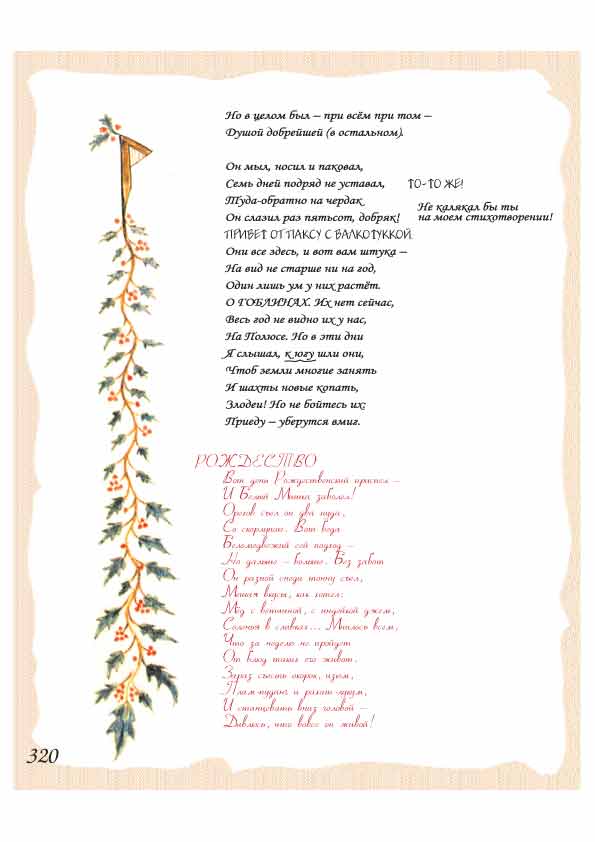 Но в целом был – при всём при том –
Душой добрейшей (в остальном).
Он мыл, носил и паковал,
Семь дней подряд не уставал,
ТО-ТО ЖЕ!
Туда-обратно на чердак
Он слазил раз пятьсот, добряк!
Не калякал бы ты
на моем стихотворении!
ПРИВЕТ ОТ ПАКСУ С ВАЛКОТУККОЙ.
Они все здесь, и вот вам штука –
На вид не старше ни на год,
Один лишь ум у них растёт.
О ГОБЛИНАХ. Их нет сейчас,
Весь год не видно их у нас,
На Полюсе. Но в эти дни
Я слышал, к югу шли они,
Чтоб земли многие занять
И шахты новые копать,
Злодеи! Но не бойтесь их:
Приеду – уберутся вмиг.
РОЖДЕСТВО
Вот день Рождественский приспел –
И Белый Мишка заболел!
Орехов съел он два пуда,
Со скорлупою. Вот беда
Беломедвежий сей подход –
Но дальше – больше. Без забот
Он разной снеди тонну съел,
Мешая вкусы, как хотел:
Мёд с ветчиной, с индейкой джем,
Соленья в сливках... Мнилось всем,
Что за неделю не пройдет
От блюд таких его живот.
Зараз съесть окорок, изюм,
Плам-пудинг и рахат-лукум,
И станцевать вниз головой –
Дивлюсь, что вовсе он живой!
320